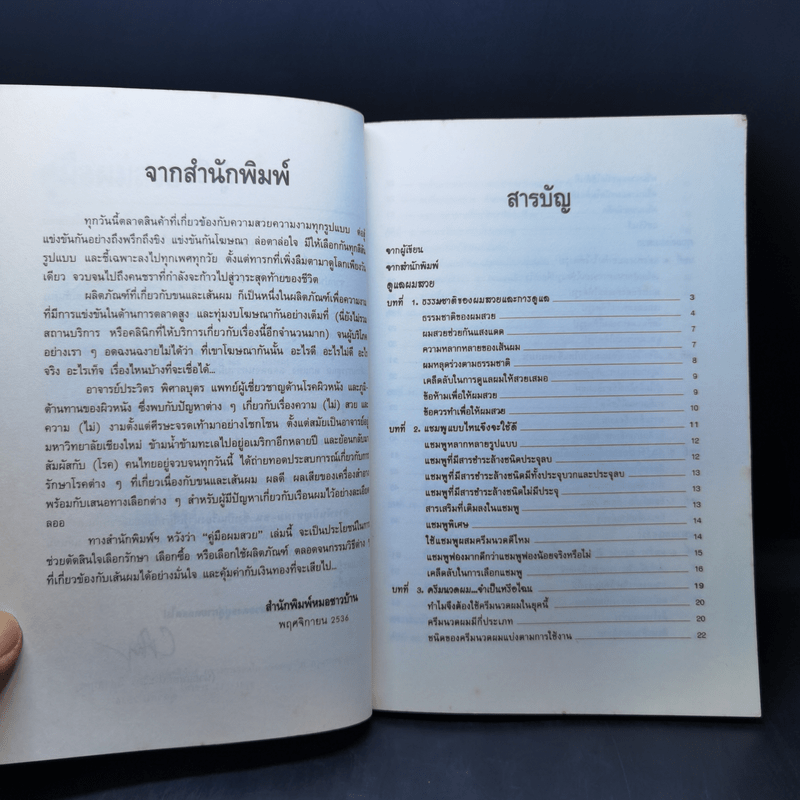 จากสำนักพิมพ์
ทุกวันนี้ตลาดสินค้าที่เกี่ยวข้องกับความสวยความงามทุกรูปแบบ ต่อสู้
แข่งขันกันอย่างถึงพริกถึงขิง แข่งขันกันโฆษณา ล่อตาล่อใจ มีให้เลือกกันทุกสีสัน
รูปแบบ และชี้เฉพาะลงไปทุกเพศทุกวัย ตั้งแต่ทารกที่เพิ่งลืมตามาดูโลกเพียงวัน
เดียว จวบจนไปถึงคนชราที่กำลังจะก้าวไปสู่วาระสุดท้ายของชีวิต
ผลิตภัณฑ์ที่เกี่ยวกับขนและเส้นผม ก็เป็นหนึ่งในผลิตภัณฑ์เพื่อความงาม
ที่มีการแข่งขันในด้านการตลาดสูง และทุ่มงบโฆษณากันอย่างเต็มที่ (นี่ยังไม่รวม
สถานบริการ หรือคลินิกที่ให้บริการเกี่ยวกับเรื่องนี้อีกจำนวนมาก) จนผู้บริโภค
อย่างเรา ๆ อดฉงนฉงายไม่ได้ว่า ที่เขาโฆษณากันนั้น อะไรดี อะไรไม่ดี อะไร
จริง อะไรเท็จ เรื่องไหนบ้างที่จะเชื่อได้...
อาจารย์ประวิตร พิศาลบุตร แพทย์ผู้เชี่ยวชาญด้านโรคผิวหนัง และภูมิ
ต้านทานของผิวหนัง ซึ่งพบกับปัญหาต่าง ๆ เกี่ยวกับเรื่องความ (ไม่) สวย และ
ความ (ไม่) งามตั้งแต่ศีรษะจรดเท้ามาอย่างโชกโชน ตั้งแต่สมัยเป็นอาจารย์อยู่
มหาวิทยาลัยเชียงใหม่ ข้ามน้ำข้ามทะเลไปอยู่อเมริกาอีกหลายปี และย้อนกลับมา
สัมผัสกับ (โรค) คนไทยอยู่จวบจนทุกวันนี้ ได้ถ่ายทอดประสบการณ์เกี่ยวกับการ
รักษาโรคต่าง ๆ ที่เกี่ยวเนื่องกับขนและเส้นผม ผลดี ผลเสียของเครื่องสำอาง
พร้อมกับเสนอทางเลือกต่าง ๆ สำหรับผู้มีปัญหาเกี่ยวกับเรือนผมไว้อย่างละเอียด
ลออ
ทางสำนักพิมพ์ฯ หวังว่า "คู่มือผมสวย" เล่มนี้ จะเป็นประโยชน์ในการ
ช่วยตัดสินใจเลือกรักษา เลือกซื้อ หรือเลือกใช้ผลิตภัณฑ์ ตลอดจนกรรมวิธีต่าง ๆ
ที่เกี่ยวข้องกับเส้นผมได้อย่างมั่นใจ และคุ้มค่ากับเงินทองที่จะเสียไป...
สำนักพิมพ์หมอชาวบ้าน
พฤศจิกายน 2536
สารบัญ
จากผู้เขียน
จากสำนักพิมพ์
ดูแลผมสวย
บทที่ 1. ธรรมชาติของผมสวยและการดูแล 3
ธรรมชาติของผมสวย 4
ผมสวยช่วยกันแสงแดด 7
ความหลากหลายของเส้นผม 7
ผมหลุดร่วงตามธรรมชาติ 8
เคล็ดลับในการดูแลผมให้สวยเสมอ 9
ข้อห้ามเพื่อให้ผมสวย 9
ข้อควรทำเพื่อให้ผมสวย 10
บทที่ 2. แชมพูแบบไหนจึงจะใช้ดี 11
แชมพูหลากหลายรูปแบบ 12
แชมพูที่มีสารชำระล้างชนิดประจุลบ 12
แชมพูที่มีสารชำระล้างชนิดมีทั้งประจุบวกและประจุลบ 13
แชมพูที่มีสารชำระล้างชนิดไม่มีประจุ 13
สารเสริมที่เติมลงในแชมพู 13
แชมพูพิเศษ 14
ใช้แชมพูผสมครีมนวดดีไหม 14
แชมพูฟองมากดีกว่าแชมพูฟองน้อยจริงหรือไม่ 15
เคล็ดลับในการเลือกแชมพู 16
บทที่ 3. ครีมนวดผม...จำเป็นหรือไฉน 19
ทำไมจึงต้องใช้ครีมนวดผมในยุคนี้ 20
ครีมนวดผมมีกี่ประเภท 20
ชนิดของครีมนวดผมแบ่งตามการใช้งาน 22